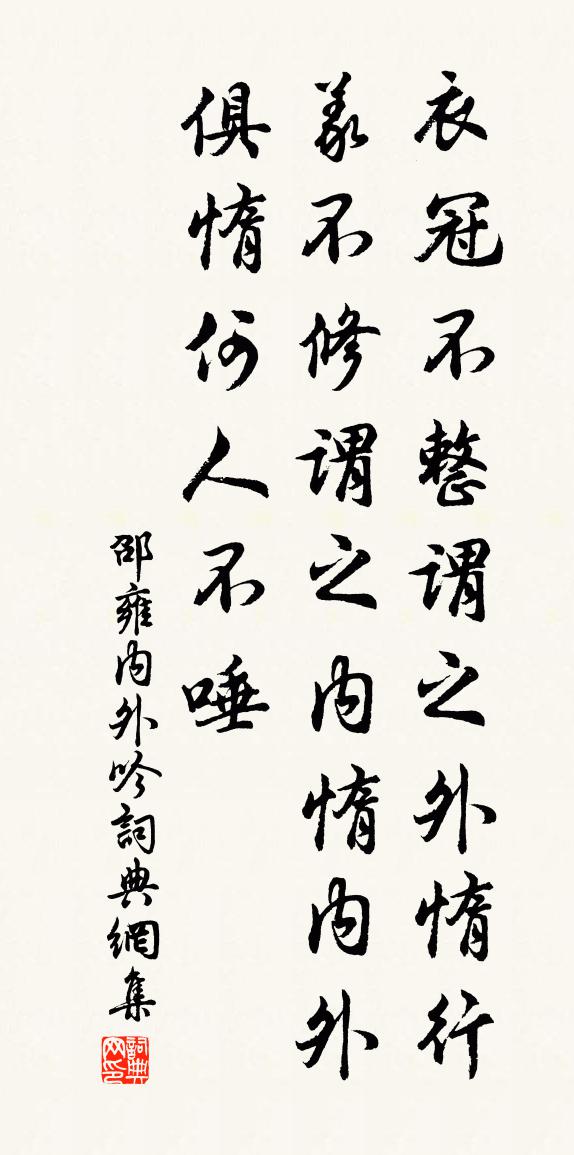 衣冠不整謂之外惰行
義不修謂之内惰内外
俱惰何人不唾
邵雍内外吟詞典網集
詞典网印